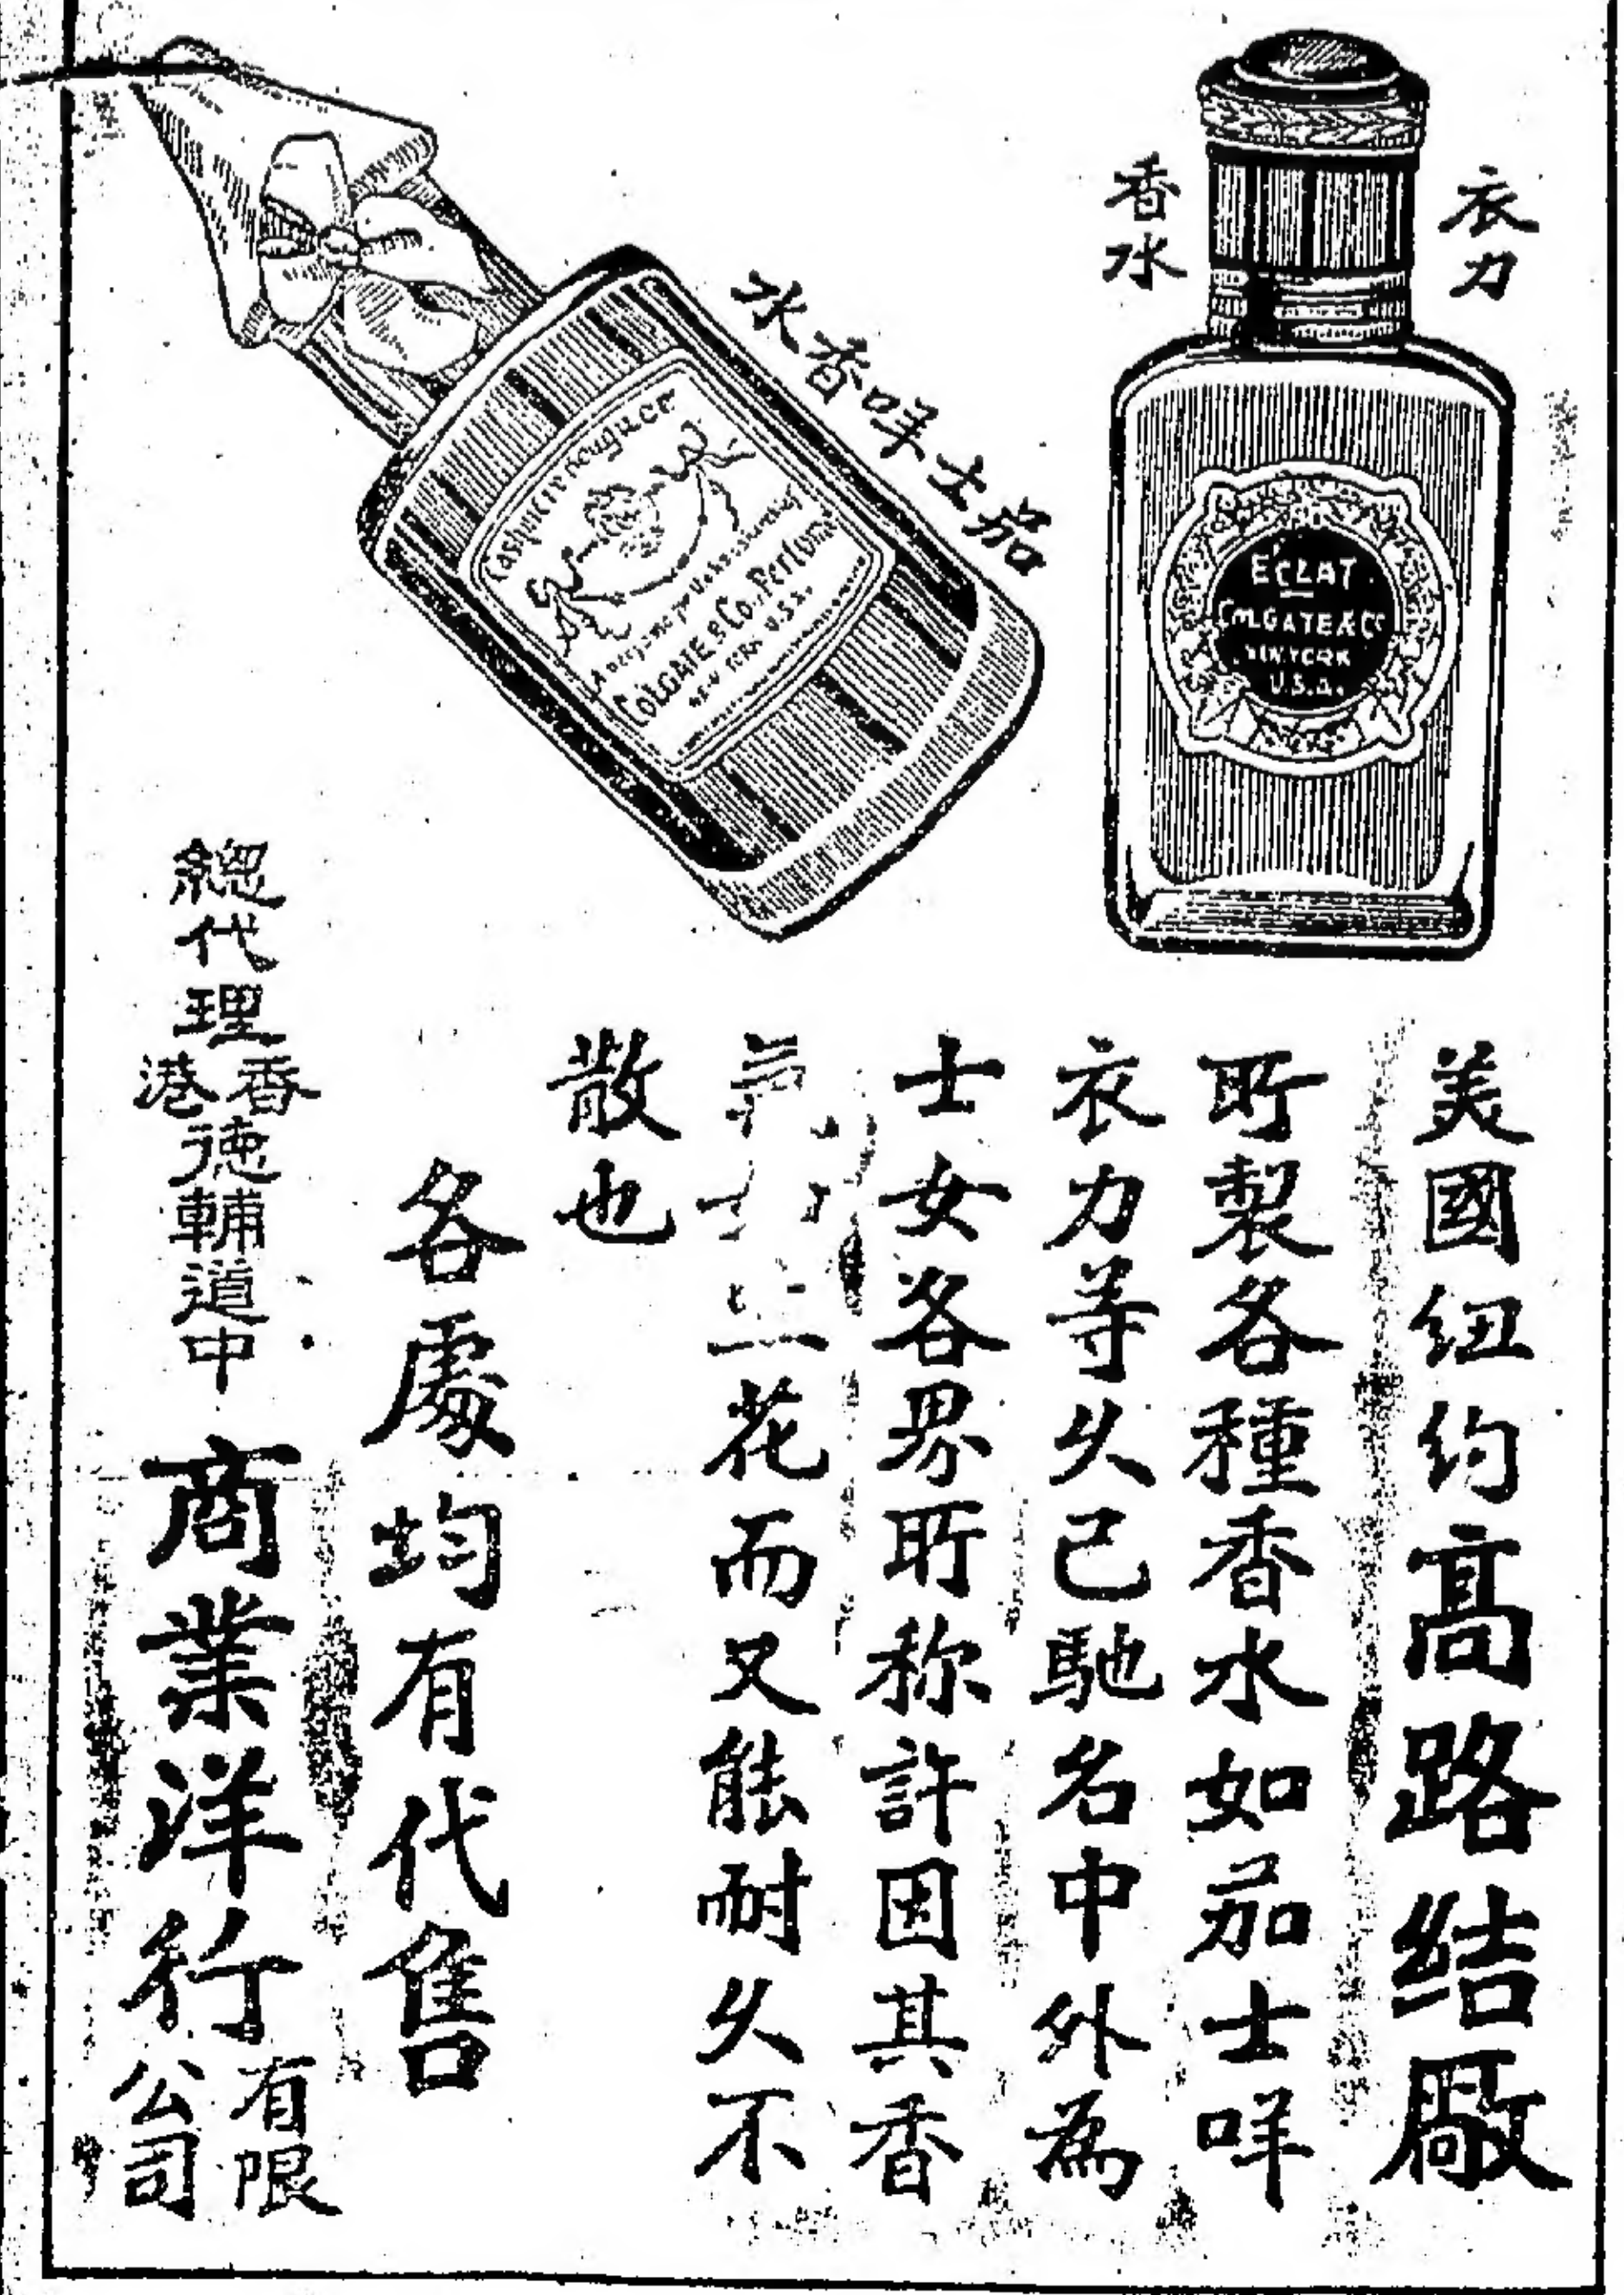 衣力
香水
茄士咩香水
ÉCLAT
COLGATE & Co
NEW YORK
U.S.A.
Cashmere Bouquet
COLGATE & Co. Perfumers
NEW YORK U.S.A.
美國纽约高路结厰
所製各種香水如茄士咩
衣力等久已馳名中外為
士女各界所称許因其香
花而又能耐久不
散也
各處均有代售
總代理香港德輔道中商業洋行有限公司